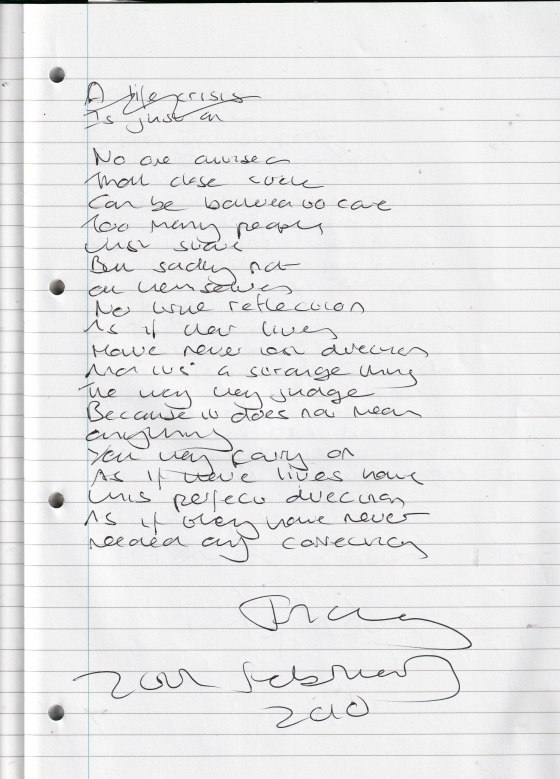 A life crisis
Is just an
No one outside
that close circle
Can be bothered to care
Too many people
Just stare
But sadly not
on themselves
No true reflection
As if their lives
Have never lost direction
And its a strange thing
The way they judge
Because it does not mean
anything
Yet they carry on
As if there lives have
this perfect direction
As if they have never
needed any correction
20th February
2010